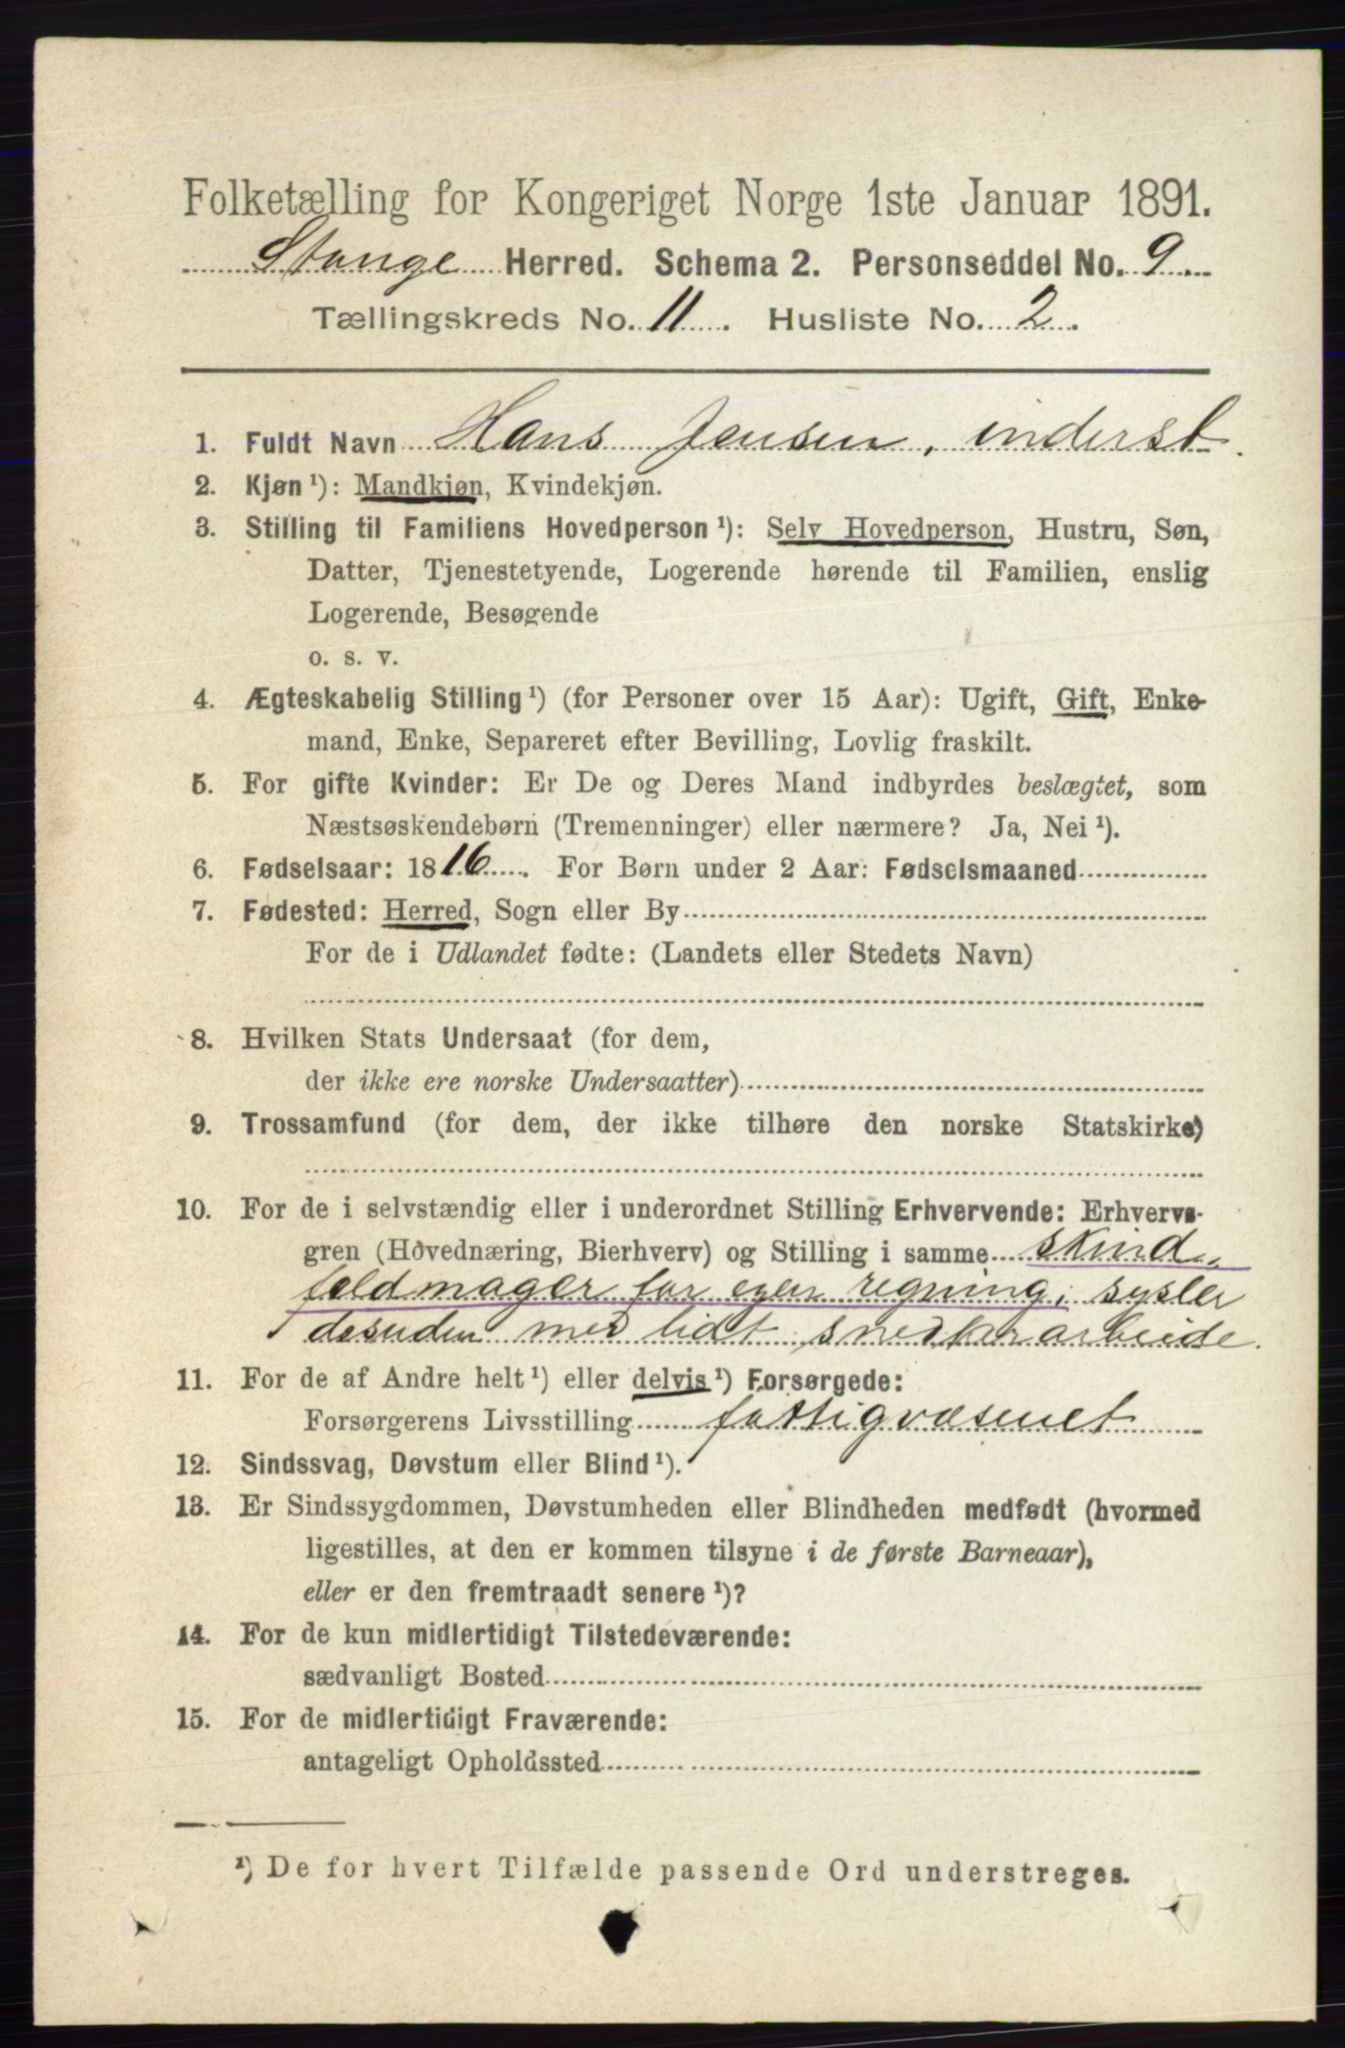 Folketælling for Kongeriget Norge 1ste Januar 1891.
Stange Herred. Schema 2. Personseddel No. 9.
Tællingskreds No. 11. Husliste No. 2.
1. Fuldt Navn Hans Jensen, inderst.
2. Kjøn ¹): Mandkjøn, Kvindekjøn.
3. Stilling til Familiens Hovedperson ¹): Selv Hovedperson, Hustru, Søn,
Datter, Tjenestetyende, Logerende hørende til Familien, enslig
Logerende, Besøgende
o. s. v.
4. Ægteskabelig Stilling ¹) (for Personer over 15 Aar): Ugift, Gift, Enke-
mand, Enke, Separeret efter Bevilling, Lovlig fraskilt.
5. For gifte Kvinder: Er De og Deres Mand indbyrdes beslægtet, som
Næstsøskendebørn (Tremenninger) eller nærmere? Ja, Nei ¹).
6. Fødselsaar: 1816. For Børn under 2 Aar: Fødselsmaaned
7. Fødested: Herred, Sogn eller By
For de i Udlandet fødte: (Landets eller Stedets Navn)
8. Hvilken Stats Undersaat (for dem,
der ikke ere norske Undersaatter)
9. Trossamfund (for dem, der ikke tilhøre den norske Statskirke)
10. For de i selvstændig eller i underordnet Stilling Erhvervende: Erhvervs-
gren (Hovednæring, Bierhverv) og Stilling i samme skind-
feldmager for egen regning; sysler
desuden med lidt snedkerarbeide.
11. For de af Andre helt ¹) eller delvis ¹) Forsørgede:
Forsørgerens Livsstilling fattigvæsenet
12. Sindssvag, Døvstum eller Blind ¹).
13. Er Sindssygdommen, Døvstumheden eller Blindheden medfødt (hvormed
ligestilles, at den er kommen tilsyne i de første Barneaar),
eller er den fremtraadt senere ¹)?
14. For de kun midlertidigt Tilstedeværende:
sædvanligt Bosted
15. For de midlertidigt Fraværende:
antageligt Opholdssted
¹) De for hvert Tilfælde passende Ord understreges.